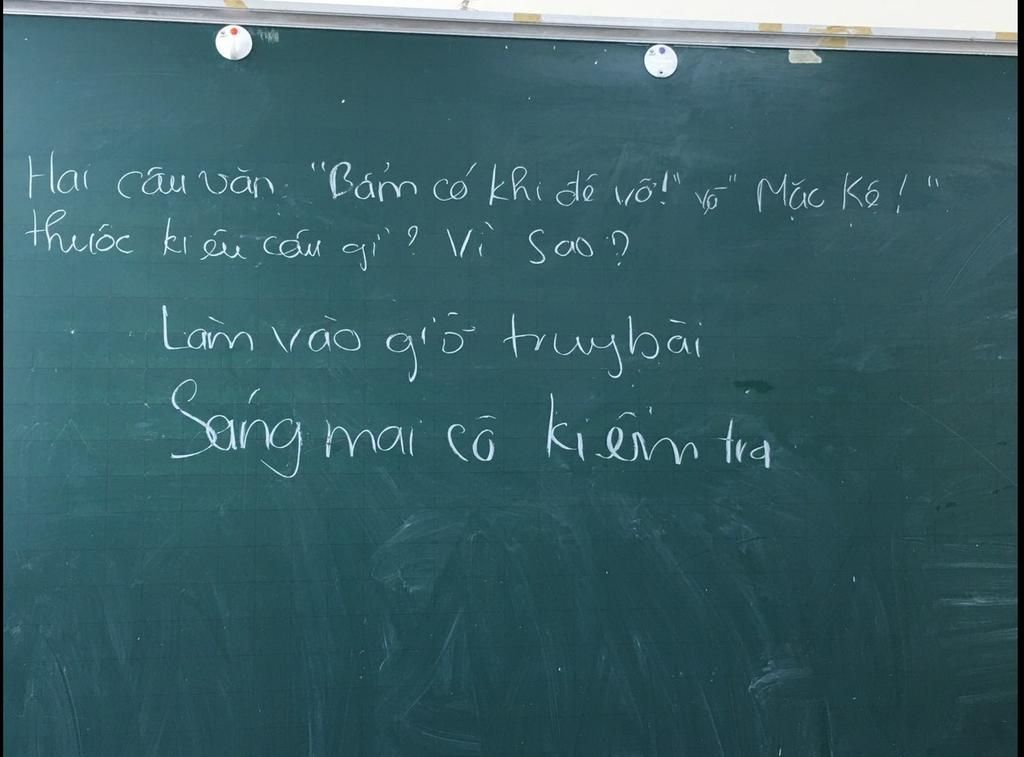 Hai câu văn: "Bẩm có khi đê vỡ!" và "Mặc kệ!"
thuộc kiểu câu gì? Vì sao?
Làm vào giờ truy bài
Sáng mai cô kiểm tra